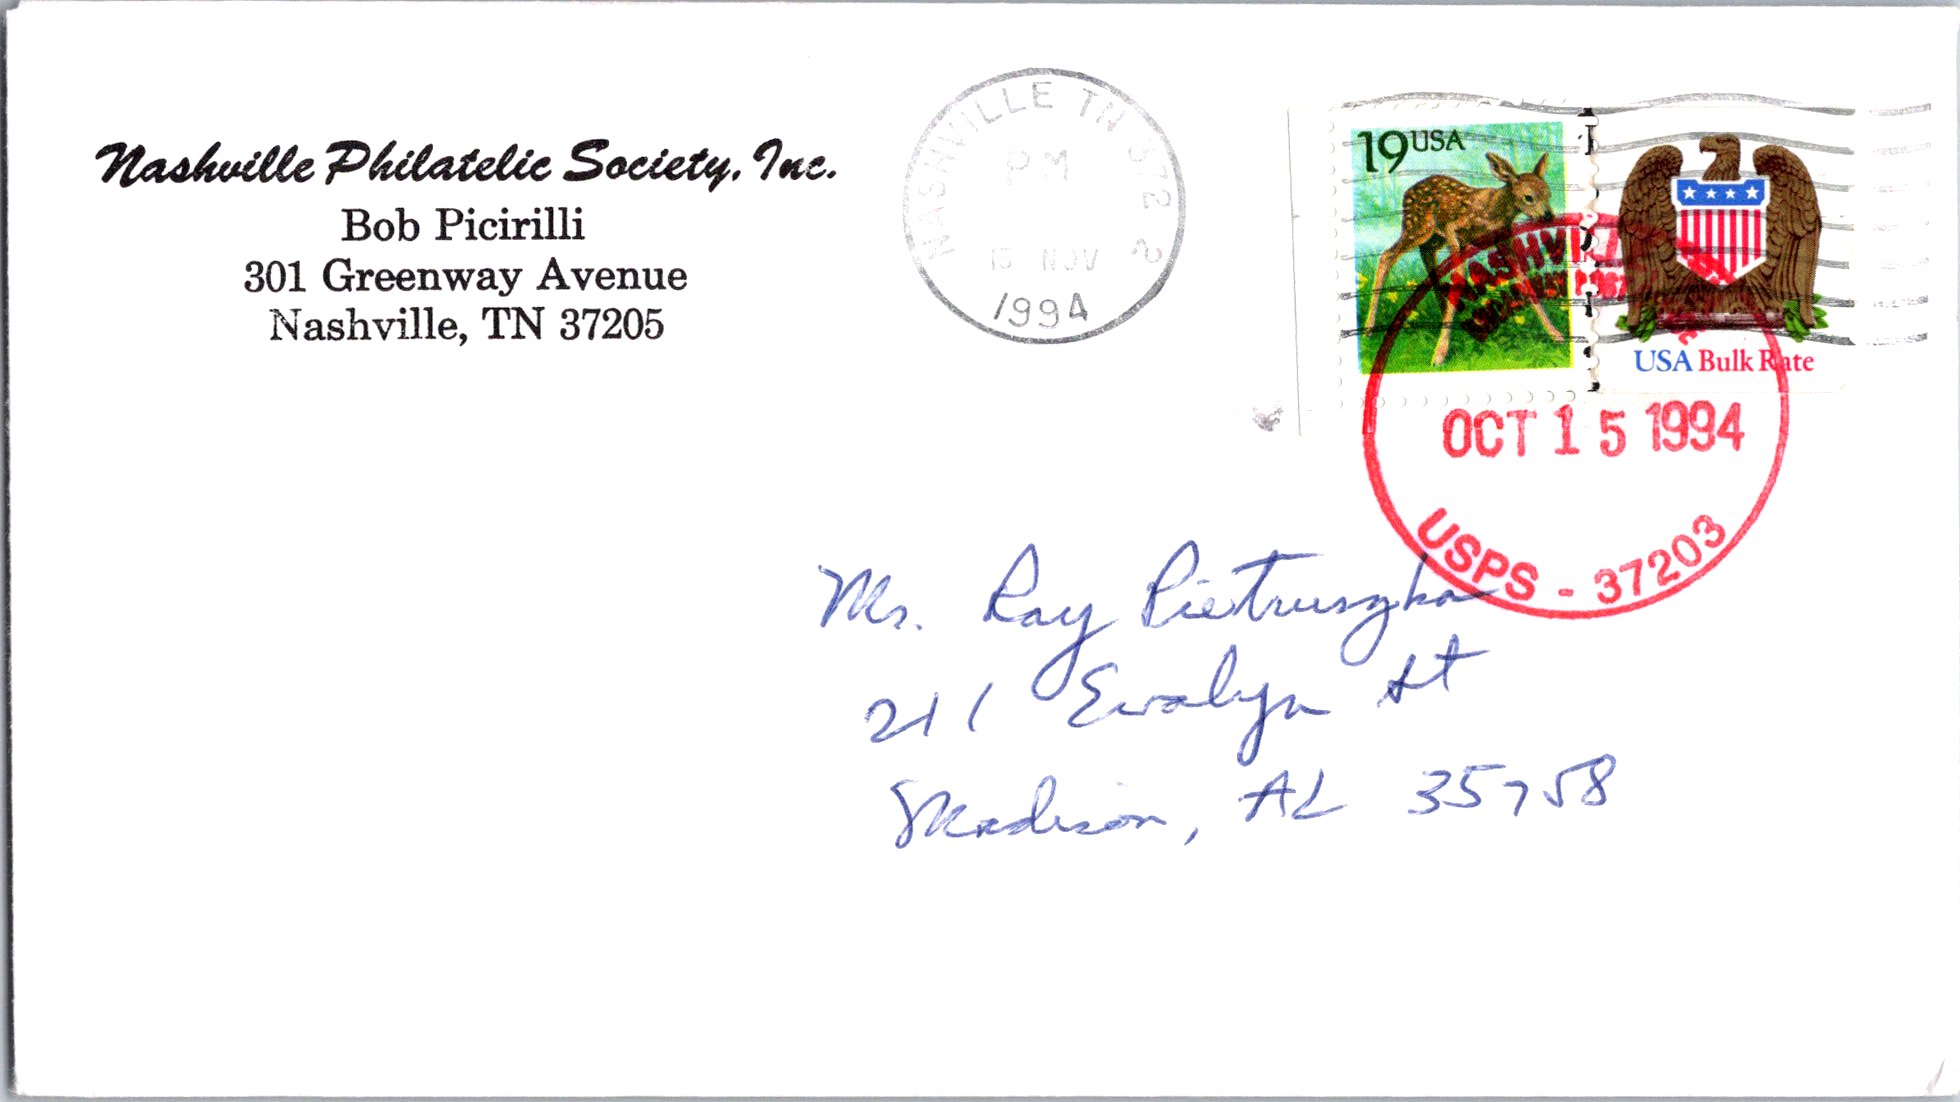 Nashville Philatelic Society, Inc.
Bob Picirilli
301 Greenway Avenue
Nashville, TN 37205
NASHVILLE TN 372
PM
15 NOV
1994
19 USA
USA Bulk Rate
NASHVILLE
OCT 15 1994
USPS - 37203
Mr. Ray Pietruszka
211 Evalyn St
Madison, AL 35758